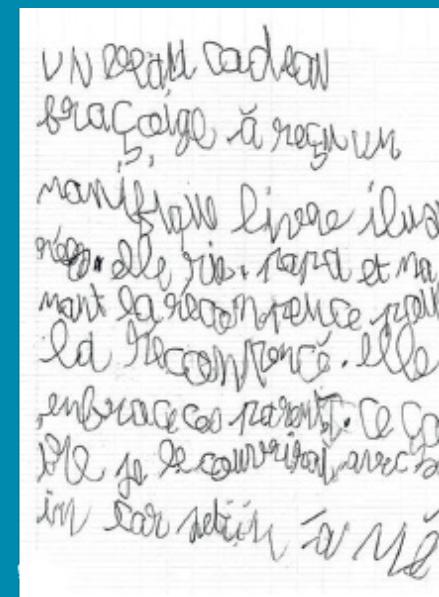 UN beau cadeau
braçoige à reçu un
manifique livre ilus
elle rie. papa et ma
mant la recompence pour
la recompencé. elle
enbrace ces parent. ce
ble je le couvrirai avec s
in car